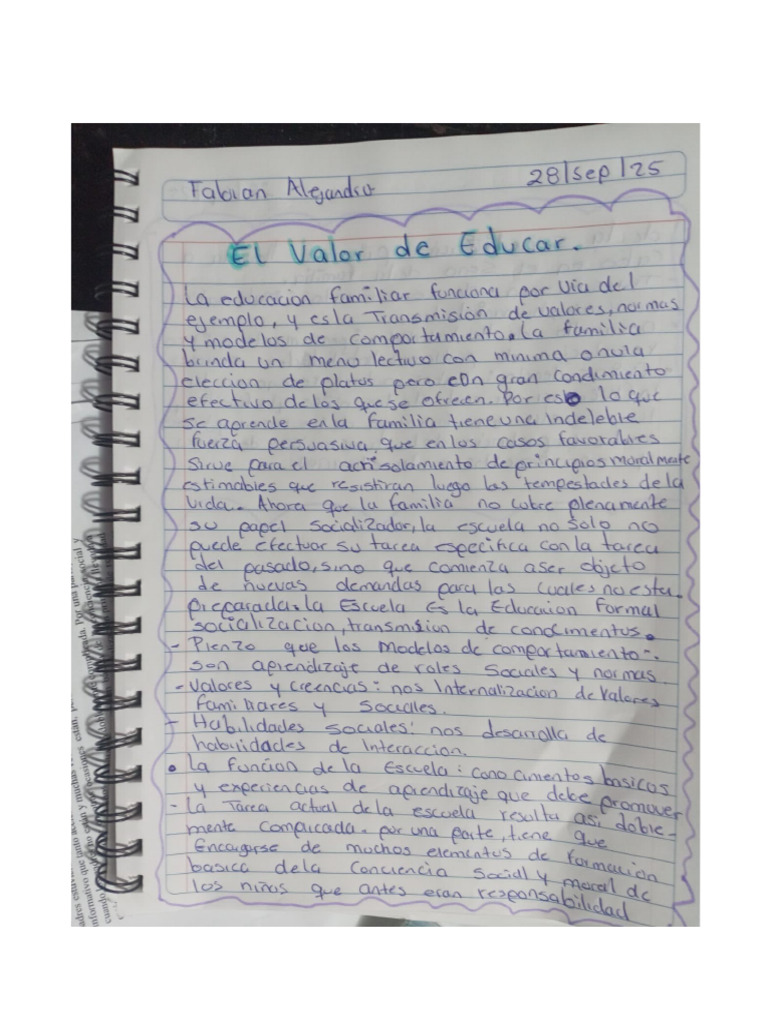 Fabian Alejandro
28/sep/25
El Valor de Educar.
La educacion familiar funciona por via del
ejemplo, y es la Transmisión de valores, normas
y modelos de comportamiento. La familia
brinda un menu lectivo con minima o nula
eleccion de platos pero con gran condimento
efectivo de los que se ofrecen. Por eso lo que
se aprende en la familia tiene una indeleble
fuerza persuasiva, que en los casos favorables
sirve para el acrisolamiento de principios moralmente
estimables que resistiran luego las tempestades de la
vida. Ahora que la familia no cubre plenamente
su papel socializador, la escuela no solo no
puede efectuar su tarea especifica con la tarea
del pasado, sino que comienza a ser objeto
de nuevas demandas para las cuales no esta
preparada. la Escuela Es la Educacion Formal
socializacion, transmision de conocimentos.
- Pienzo que los modelos de comportamiento-.
son aprendizaje de roles Sociales y normas.
- Valores y creencias: nos Internalizacion de Valores
Familiares y Sociales.
- Habilidades Sociales: nos desarrolla de
habilidades de Interaccion.
• La funcion de la Escuela: conocimentos basicos
y experiencias de aprendizaje que debe promover
- La Tarea actual de la escuela resulta asi doble-
mente complicada. por una parte, tiene que
Encargarse de muchos elementos de formacion
basica de la Conciencia Social y moral de
los niños que antes eran responsabilidad